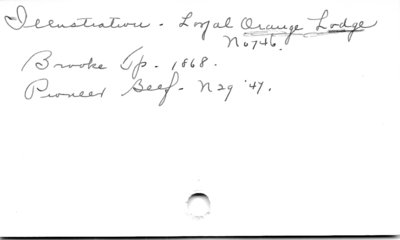 Illustration - Loyal Orange Lodge
No 746.
Brooke Tp. - 1868.
Pioneer Beef - N 29 '47.